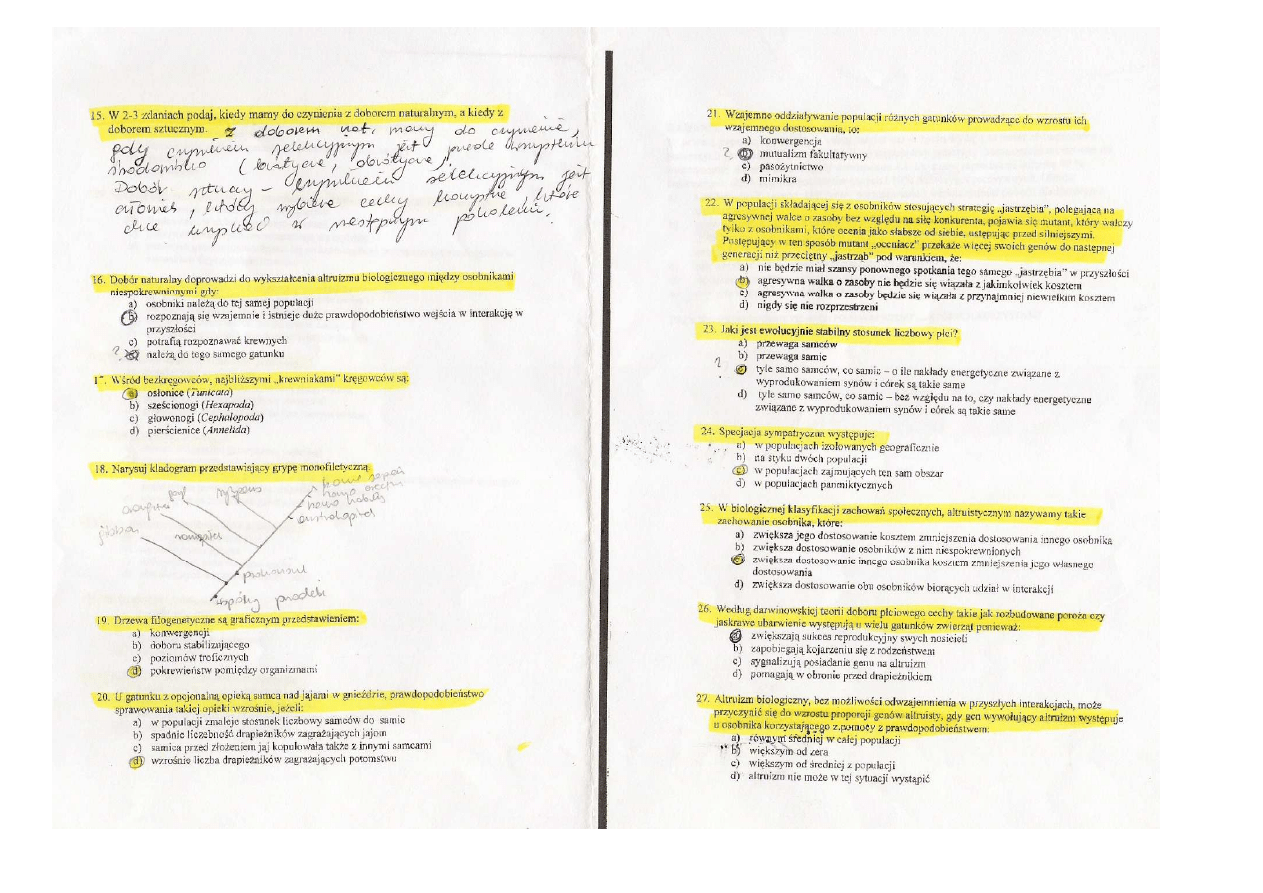 15. W 2-3 zdaniach podaj, kiedy mamy do czynienia z doborem naturalnym, a kiedy z
doborem sztucznym. Z doborem nat. mamy do czynienia,
gdy czynnikiem selekcyjnym jest presja
środowiska (biotyczne, abiotyczne).
Dobór sztuczny – czynnikiem selekcyjnym jest
człowiek, który wybiera cechy korzystne, które
chce w następnym pokoleniu.
16. Dobór naturalny doprowadzi do wykształcenia altruizmu biologicznego między osobnikami
niespokrewnionymi gdy:
a) osobniki należą do tej samej populacji
b) rozpoznają się wzajemnie i istnieje duże prawdopodobieństwo wejścia w interakcję w
przyszłości
c) potrafią rozpoznawać krewnych
? d) należą do tego samego gatunku
17. Wśród bezkręgowców, najbliższymi „krewniakami" kręgowców są:
a) osłonice (Tunicata)
b) sześcionogi (Hexapoda)
c) głowonogi (Cephalopoda)
d) pierścienice (Annelida)
18. Narysuj kladogram przedstawiający grypę monofiletyczną
homo sapiens
homo erectus
homo habilis
australopitek
goryl
szympans
orangutan
gibbon
prokonsul
wspólny przodek
19. Drzewa filogenetyczne są graficznym przedstawieniem:
a) konwergencji
b) doboru stabilizującego
c) poziomów troficznych
d) pokrewieństw pomiędzy organizmami
20. U gatunku z opcjonalną opieką samca nad jajami w gnieździe, prawdopodobieństwo
sprawowania takiej opieki wzrośnie, jeżeli:
a) w populacji zmaleje stosunek liczbowy samców do samic
b) spadnie liczebność drapieżników zagrażających jajom
c) samica przed złożeniem jaj kopulowała także z innymi samcami
d) wzrośnie liczba drapieżników zagrażających potomstwu
21. Wzajemno oddziaływanie populacji różnych gatunków prowadzące do wzrostu ich
wzajemnego dostosowania, to:
a) konwergencja
? b) mutualizm fakultatywny
c) pasożytnictwo
d) mimikra
22. W populacji składającej się z osobników stosujących strategię „jastrzębia", polegającą na
agresywnej walce o zasoby bez względu na siłę konkurenta, pojawia się mutant, który walczy
tylko z osobnikami, które ocenia jako słabsze od siebie, ustępując przed silniejszymi.
Postępujący w ten sposób mutant „oceniacz" przekaże więcej swoich genów do następnej
generacji niż przeciętny „jastrząb" pod warunkiem, że:
a) nie będzie miał szansy ponownego spotkania tego samego „jastrzębia" w przyszłości
b) agresywna walka o zasoby nie będzie się wiązała z jakimkolwiek kosztem
c) agresywna walka o zasoby będzie się wiązała z przynajmniej niewielkim kosztem
d) nigdy się nie rozprzestrzeni
23. Jaki jest ewolucyjnie stabilny stosunek liczbowy płci?
a) przewaga samców
b) przewaga samic
? c) tyle samo samców, co samic – o ile nakłady energetyczne związane z
wyprodukowaniem synów i córek są takie same
d) tyle samo samców, co samic – bez względu na to, czy nakłady energetyczne
związane z wyprodukowaniem synów i córek są takie same
24. Specjacja sympatryczna występuje:
a) w populacjach izolowanych geograficznie
b) na styku dwóch populacji
c) w populacjach zajmujących ten sam obszar
d) w populacjach panmiktycznych
25. W biologicznej klasyfikacji zachowań społecznych, altruistycznym nazywamy takie
zachowanie osobnika, które:
a) zwiększa jego dostosowanie kosztem zmniejszenia dostosowania innego osobnika
b) zwiększa dostosowanie osobników z nim niespokrewnionych
c) zwiększa dostosowanie innego osobnika kosztem zmniejszenia jego własnego
dostosowania
d) zwiększa dostosowanie obu osobników biorących udział w interakcji
26. Według darwinowskiej teorii doboru płciowego cechy takie jak rozbudowane poroża czy
jaskrawe ubarwienie występują u wielu gatunków zwierząt ponieważ:
a) zwiększają sukces reprodukcyjny swych nosicieli
b) zapobiegają kojarzeniu się z rodzeństwem
c) sygnalizują posiadanie genu na altruizm
d) pomagają w obronie przed drapieżnikiem
27. Altruizm biologiczny, bez możliwości odwzajemnienia w przyszłych interakcjach, może
przyczynić się do wzrostu proporcji genów altruisty, gdy gen wywołujący altruizm występuje
u osobnika korzystającego z pomocy z prawdopodobieństwem:
a) równym średniej w całej populacji
b) większym od zera
c) większym od średniej z populacji
d) altruizm nie może w tej sytuacji wystąpić